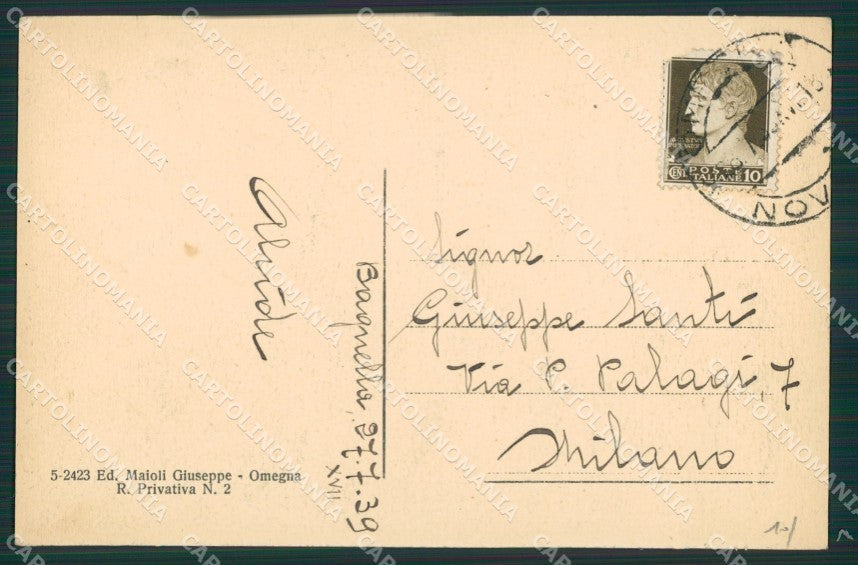 Alide
Bagnella, 27.7.39
XVII
5-2423 Ed. Maioli Giuseppe - Omegna
R. Privativa N. 2
AUGUSTO
CENT POSTE
ITALIANE 10
NOV
Signor
Giuseppe Santi
Via P. Palagi, 7
Milano
CARTOLINOMANIA